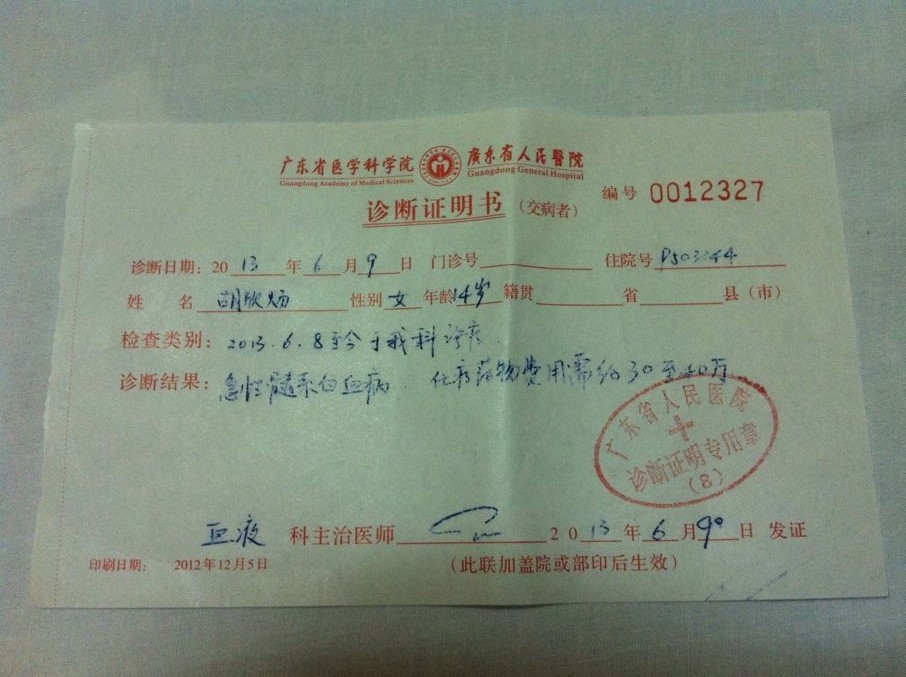 广东省医学科学院 廣东省人民醫院
Guangdong Academy of Medical Sciences Guangdong General Hospital
诊断证明书 (交病者) 编号 0012327
诊断日期：2013年6月9日 门诊号 住院号
姓 名 胡欣炀 性别 女 年龄 14岁 籍贯 省 县（市）
检查类别：2013.6.8至今于我科诊疗.
诊断结果：急性髓系白血病 化疗药物费用需约30至40万
广东省人民医院
诊断证明专用章
(8)
血液 科主治医师 2013年6月9日 发证
印刷日期： 2012年12月5日 (此联加盖院或部印后生效)